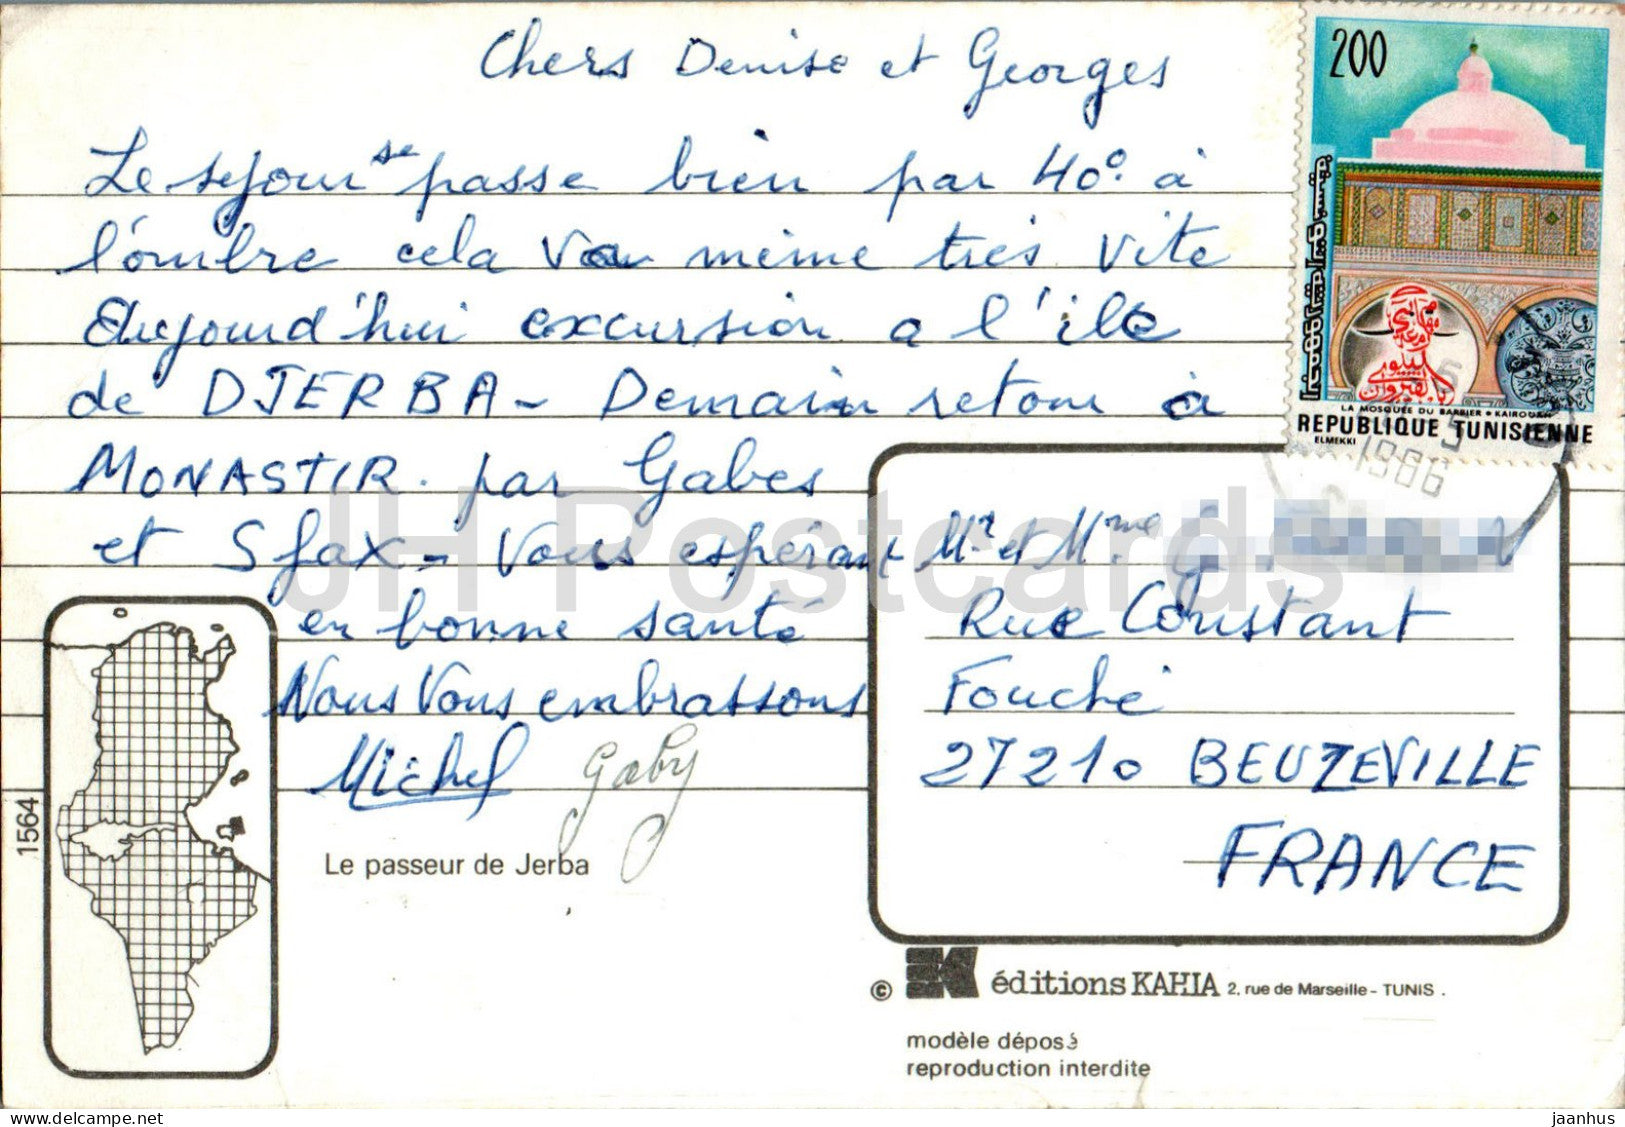 Chers Denise et Georges
Le séjour se passe bien par 40° à
l'ombre cela va même très vite
Aujourd'hui excursion a l'ile
de DJERBA - Demain retour à
MONASTIR. par Gabes
et Sfax - Vous espérant
en bonne santé
Nous Vous embrassons
Michel Gaby
Le passeur de Jerba
1564
200
LA MOSQUÉE DU BARBIER • KAIROUAN
REPUBLIQUE TUNISIENNE
ELMEKKI
1986
Mr et Mme G.
Rue Constant
Fouché
27210 BEUZEVILLE
FRANCE
© K éditions KAHIA 2, rue de Marseille - TUNIS.
modèle déposé
reproduction interdite
JH Postcards
jaanhus